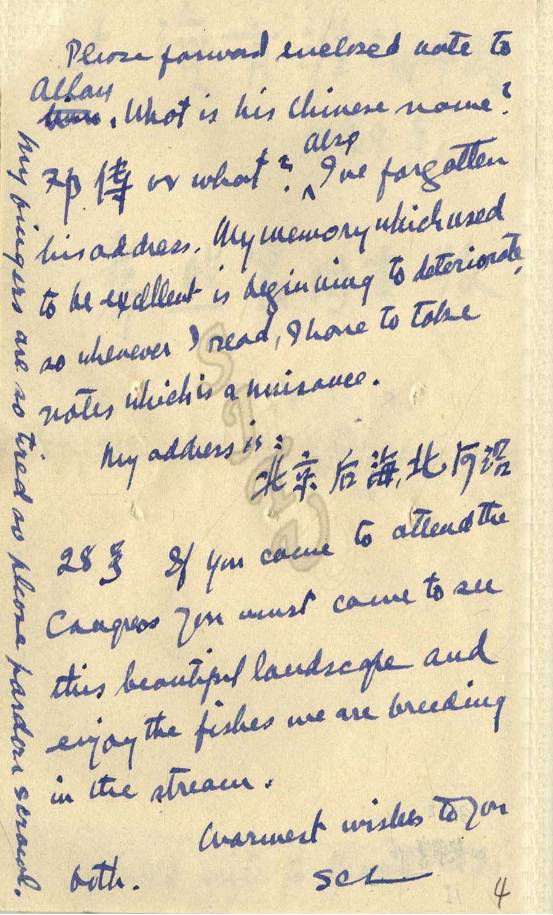 Please forward enclosed note to
Allan
him. What is his Chinese name?
邓伟 or what? also
I've forgotten
his address. My memory which used
to be excellent is beginning to deteriorate,
so whenever I read, I have to take
notes which is a nuisance.
My address is:
北京后海北河沿
28号 If you come to attend the
Congress you must come to see
this beautiful landscape and
enjoy the fishes we are breeding
in the stream.
Warmest wishes to you
both. SCL
4
My fingers are so tired so please pardon scrawl.